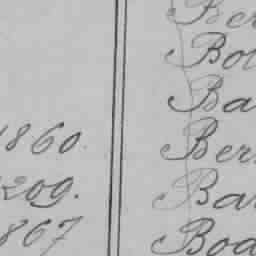 Ber
Bo
Ba
1860. Ber
209. Bar
867 Boa